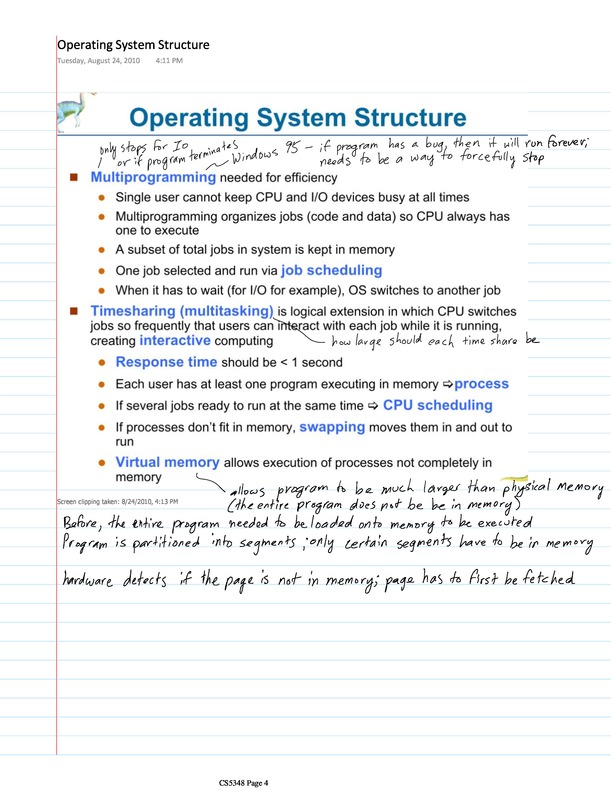 Operating System Structure
Tuesday, August 24, 2010 4:11 PM
Operating System Structure
only stops for Io
or if program terminates
Windows 95 – if program has a bug, then it will run forever;
needs to be a way to forcefully stop
Multiprogramming needed for efficiency
Single user cannot keep CPU and I/O devices busy at all times
Multiprogramming organizes jobs (code and data) so CPU always has
one to execute
A subset of total jobs in system is kept in memory
One job selected and run via job scheduling
When it has to wait (for I/O for example), OS switches to another job
Timesharing (multitasking) is logical extension in which CPU switches
jobs so frequently that users can interact with each job while it is running,
creating interactive computing
how large should each time share be
Response time should be < 1 second
Each user has at least one program executing in memory ⇨process
If several jobs ready to run at the same time ⇨ CPU scheduling
If processes don't fit in memory, swapping moves them in and out to
run
Virtual memory allows execution of processes not completely in
memory
allows program to be much larger than physical memory
(the entire program does not be be in memory)
Screen clipping taken: 8/24/2010, 4:13 PM
Before, the entire program needed to be loaded onto memory to be executed
Program is partitioned into segments; only certain segments have to be in memory
hardware detects if the page is not in memory; page has to first be fetched
CS5348 Page 4